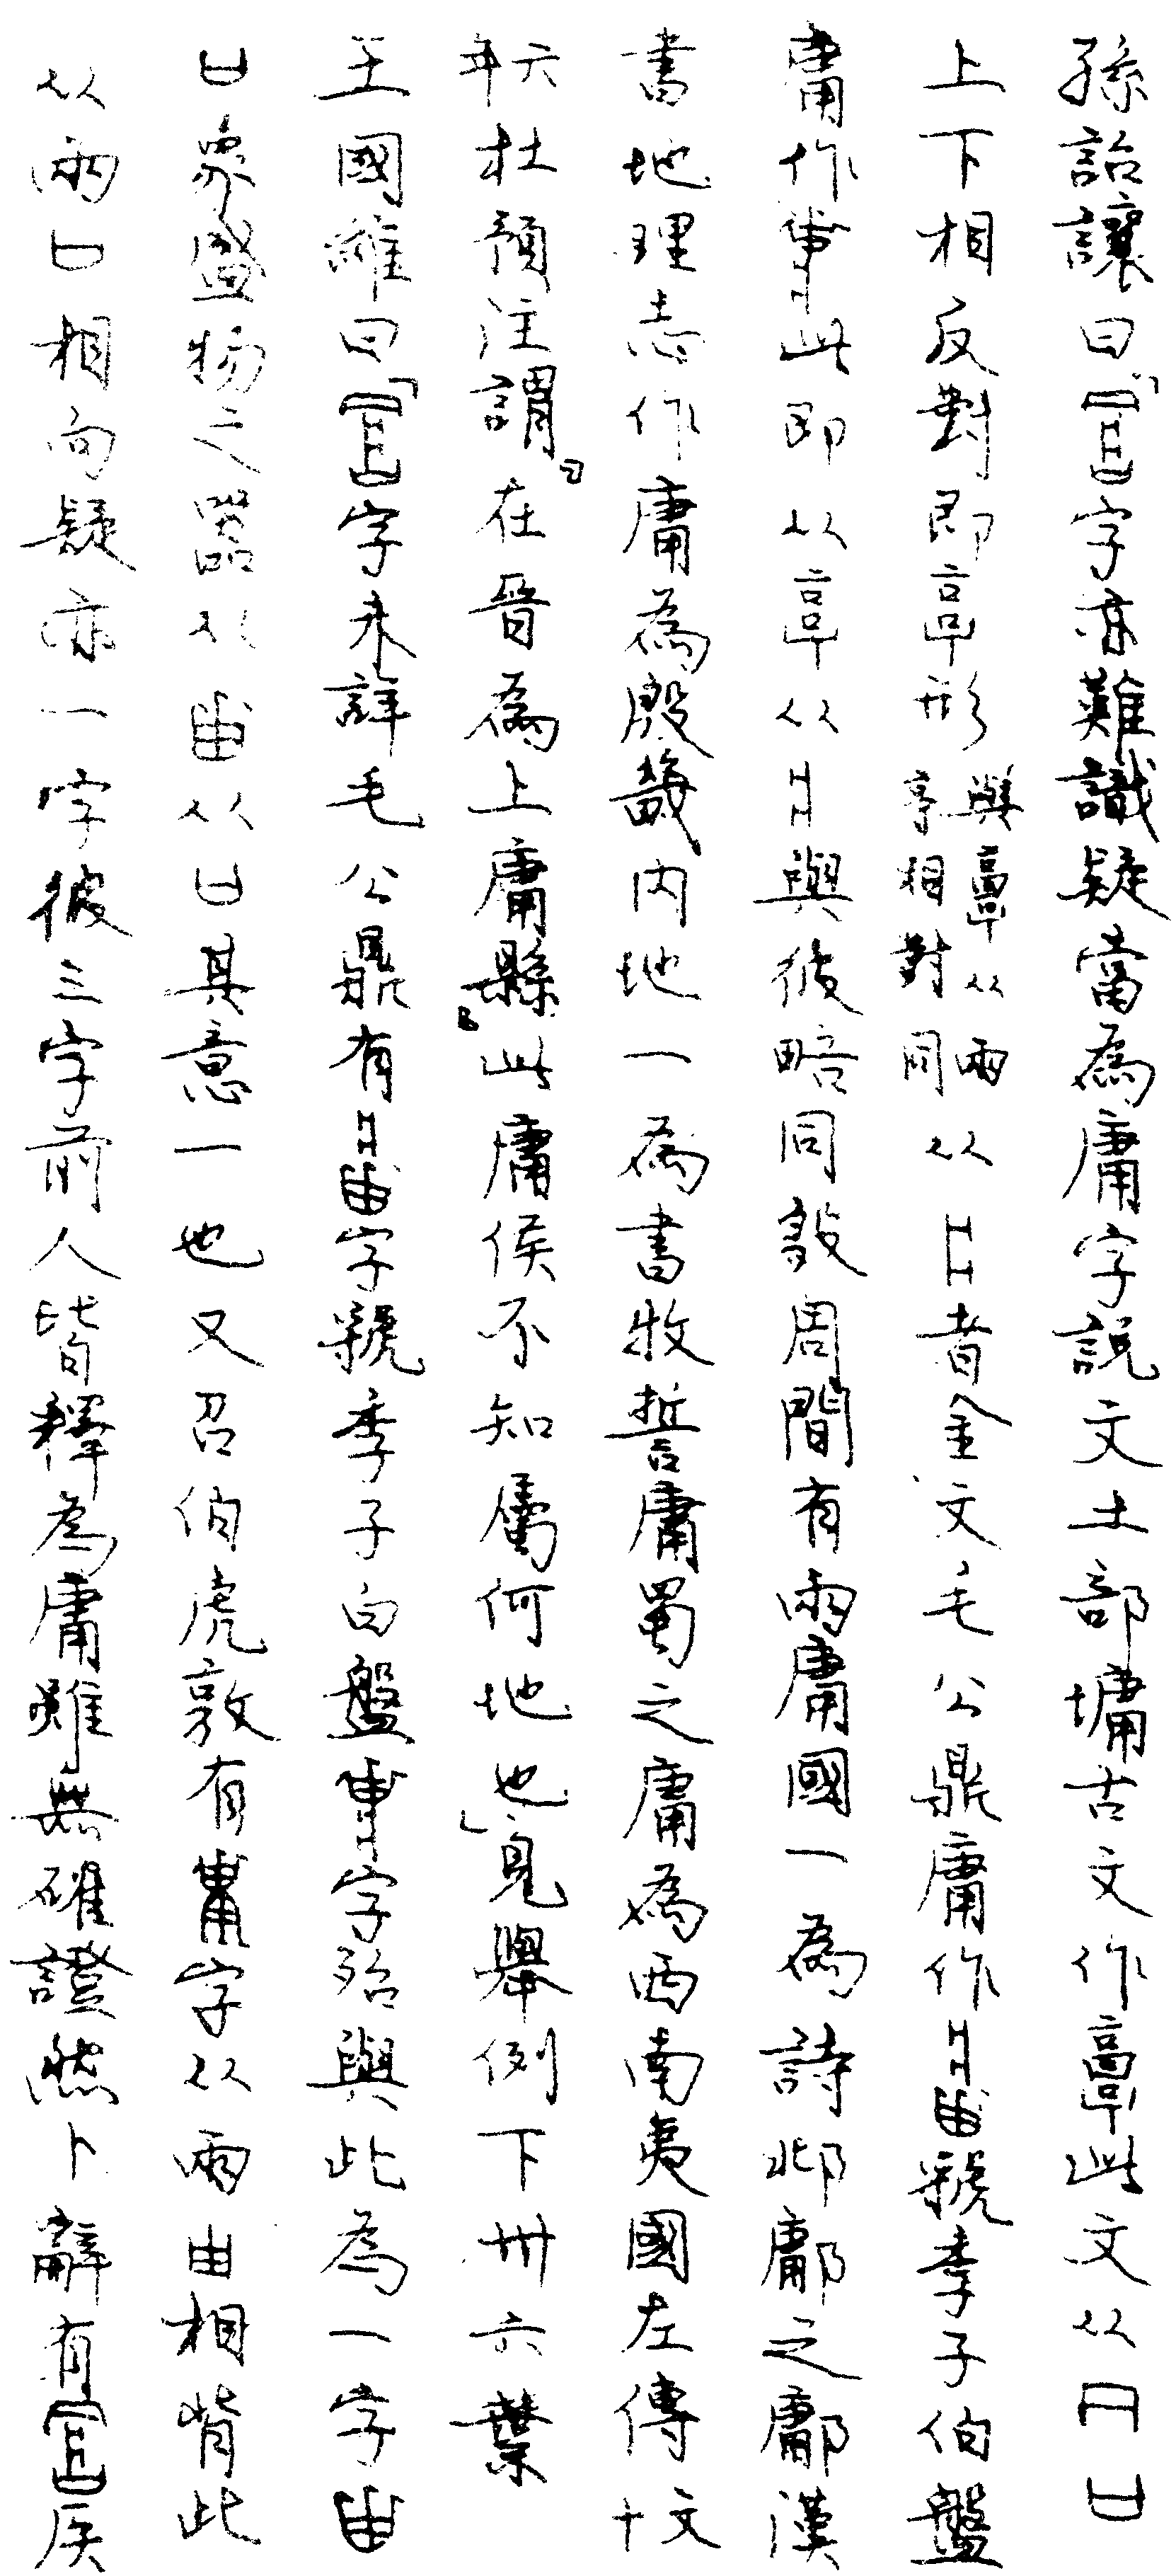 孫詒讓曰「字亦難識疑當為庸字說文土部墉古文作𩫏此文从冂凵
上下相反對即𩫏形與𩫏从兩亯相對同从者金文毛公鼎庸作虢季子伯盤
庸作此即从𩫖从與彼略同殷周間有兩庸國一為詩邶鄘之鄘漢
書地理志作庸為殷畿內地一為書牧誓庸蜀之庸為西南夷國左傳文十
六年杜預注謂『在晉為上庸縣』此庸侯不知屬何地也」見舉例下卅六葉
王國維曰「字未詳毛公鼎有字虢季子白盤字殆與此為一字由
凵象盛物之器从由从凵其意一也又召伯虎敦有字从兩由相背此
从兩凵相向疑亦一字彼三字前人皆釋為庸雖無確證然卜辭有矦